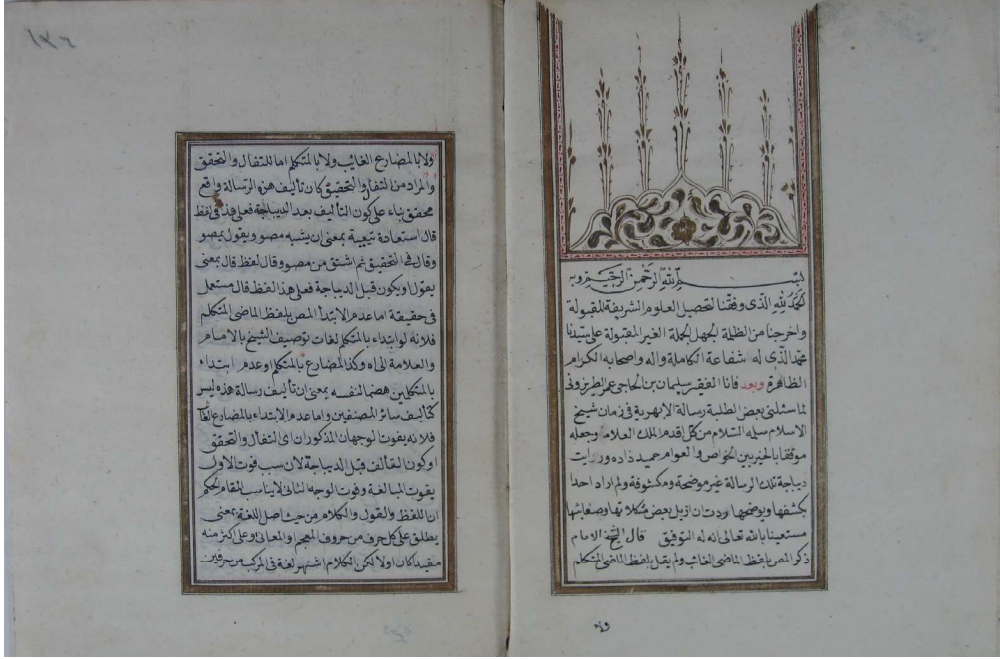 بسم الله الرحمن الرحيم وبه
الحمد لله الذى وفقنا لتحصيل العلوم الشريفة المقبولة
واخرجنا من الظلمة الجهل الغير المقبولة على سيدنا
محمد الذى له شفاعة الكاملة واله واصحابه الكرام
الظاهرة وبعد فانا الفقير سليمان بن الحاجى عمر
لما سئلنى بعض الطلبة رسالة الابهرية فى زمان شيخ
الاسلام سلمه السلام من كل اقدم الملك العلام وجعله
موفقا بالخير بين الخواص والعوام حميد زاده ورايت
ديباجة تلك الرسالة غير موضحة ومكشوفة ولم اراد احدا
بكشفها ويوضحها اردت ان ازيل بعض مشكلاتها
مستعينا بالله تعالى انه له التوفيق قال الشيخ الامام
ذكر المص بلفظ الماضى الغائب ولم يقل بلفظ الماضى المتكلم
ولا
ولا بالمضارع الغائب ولا بالمتكلم اما للتفال والتحقق
والمراد من التفال والتحقيق كان تأليف هذه الرسالة واقع
محقق بناء على كون التأليف بعد الديباجة فعلى هذا فى لفظ
قال استعادة تبعية بمعنى ان يشبه مصو ويقول بمصو
وقال فى التحقيق ثم اشتق من مصو وقال لفظ قال بمعنى
يقول او يكون قبل الديباجة فعلى هذا لفظ قال مستعمل
فى حقيقة اما عدم الابتدأ المص بلفظ الماضى المتكلم
فلانه لو ابتداء بالمتكلم لفات توصيف الشيخ بالامام
والعلامة الى اه وكذا المضارع بالمتكلم او عدم ابتداء
بالمتكلمين هضما لنفسه بمعنى ان تأليف رسالة هذه ليس
كتأليف سائر المصنفين واما عدم الابتداء بالمضارع الغائب
فلانه يفوت الوجهان المذكوران اى التفال والتحقق
او كون التألف قبل الديباجة لان سبب فوت الاول
يفوت المبالغة وفوت الوجه الثانى لا يناسب المقام الحكم
ان اللفظ والقول والكلام من حيث اصل اللغة بمعنى
يطلق على كل حرف من حروف المعجم او المعانى وعلى اكثر منه
مفيدا كان او لا لكن الكلام اشتهر لغة فى المركب من حرفين
١٣٦